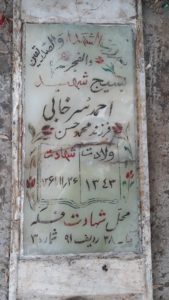 والفجر
بسیج شهید
احمد سرخابی
فرزند محمدحسن
ولادت شهادت
۱۳۴۳ ۱۳۶۱/۱۱/۲۶
محل شهادت فکه
ردیف ۹۱ شماره ۳